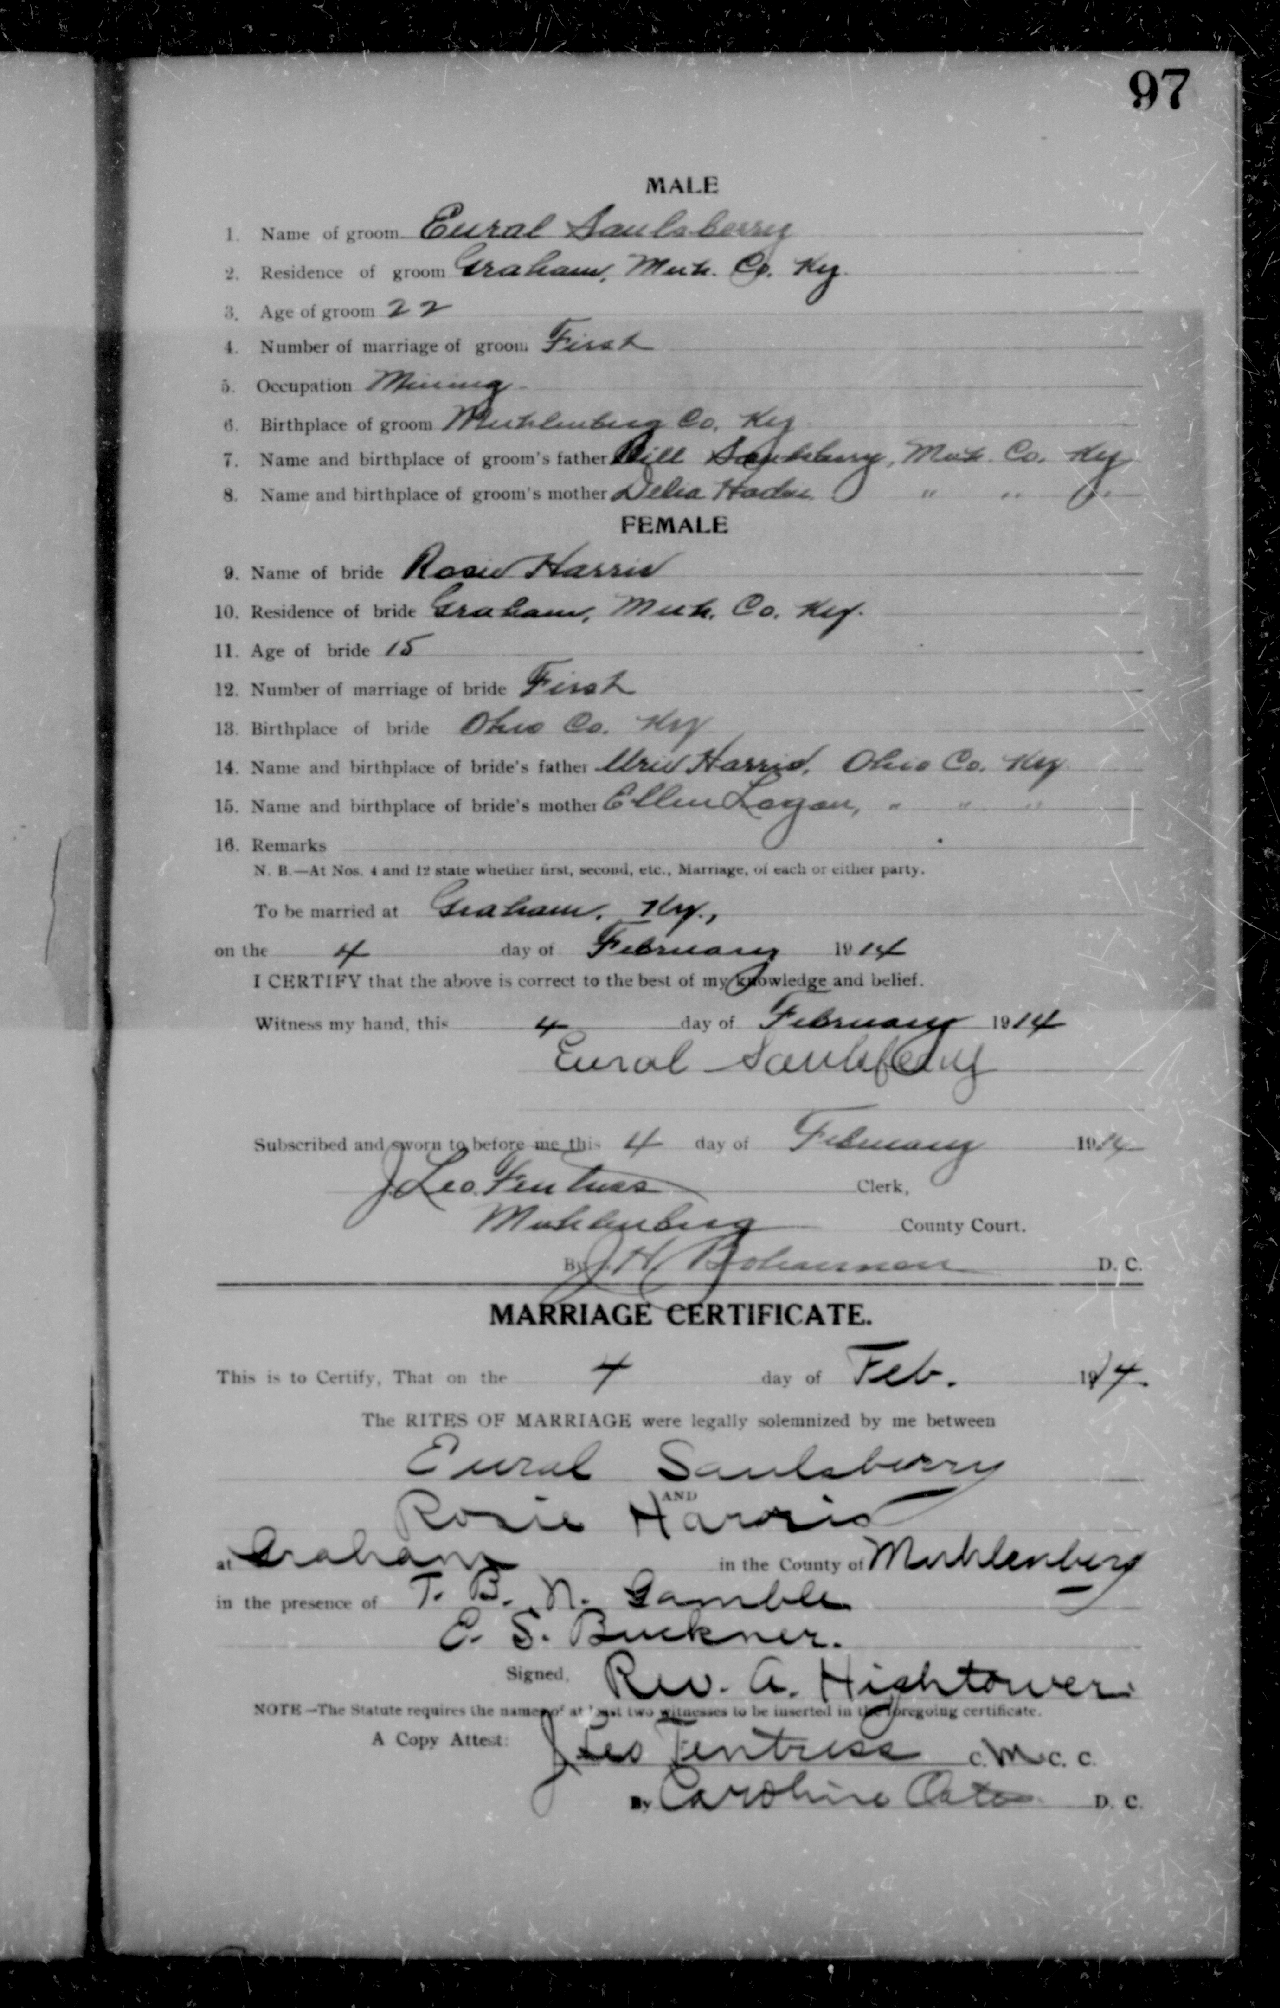 97
MALE
1. Name of groom Eural Saulsberry
2. Residence of groom Graham, Muh. Co. Ky.
3. Age of groom 22
4. Number of marriage of groom First
5. Occupation Mining
6. Birthplace of groom Muhlenberg Co. Ky
7. Name and birthplace of groom's father Bill Saulsberry, Muh. Co. Ky
8. Name and birthplace of groom's mother Delia " " "
FEMALE
9. Name of bride Rosie Harris
10. Residence of bride Graham, Muh. Co. Ky.
11. Age of bride 15
12. Number of marriage of bride First
13. Birthplace of bride Ohio Co. Ky
14. Name and birthplace of bride's father Harris, Ohio Co. Ky
15. Name and birthplace of bride's mother Ellen Logan, " " "
16. Remarks
N. B.—At Nos. 4 and 12 state whether first, second, etc., Marriage, of each or either party.
To be married at Graham, Ky.,
on the 4 day of February 1914
I CERTIFY that the above is correct to the best of my knowledge and belief.
Witness my hand, this 4 day of February 1914
Eural Saulsberry
Subscribed and sworn to before me this 4 day of February 1914
J. Leo Fentress Clerk,
Muhlenberg County Court.
By J. H. Bohannon D. C.
MARRIAGE CERTIFICATE.
This is to Certify, That on the 4 day of Feb. 1914.
The RITES OF MARRIAGE were legally solemnized by me between
Eural Saulsberry
AND
Rosie Harris
at Graham in the County of Muhlenberg
in the presence of T. B. N. Gamble
E. S. Buckner.
Signed, Rev. A. Hightower.
NOTE—The Statute requires the names of at least two witnesses to be inserted in the foregoing certificate.
A Copy Attest: J Leo Fentress C. M C. C.
By Caroline Oates D. C.